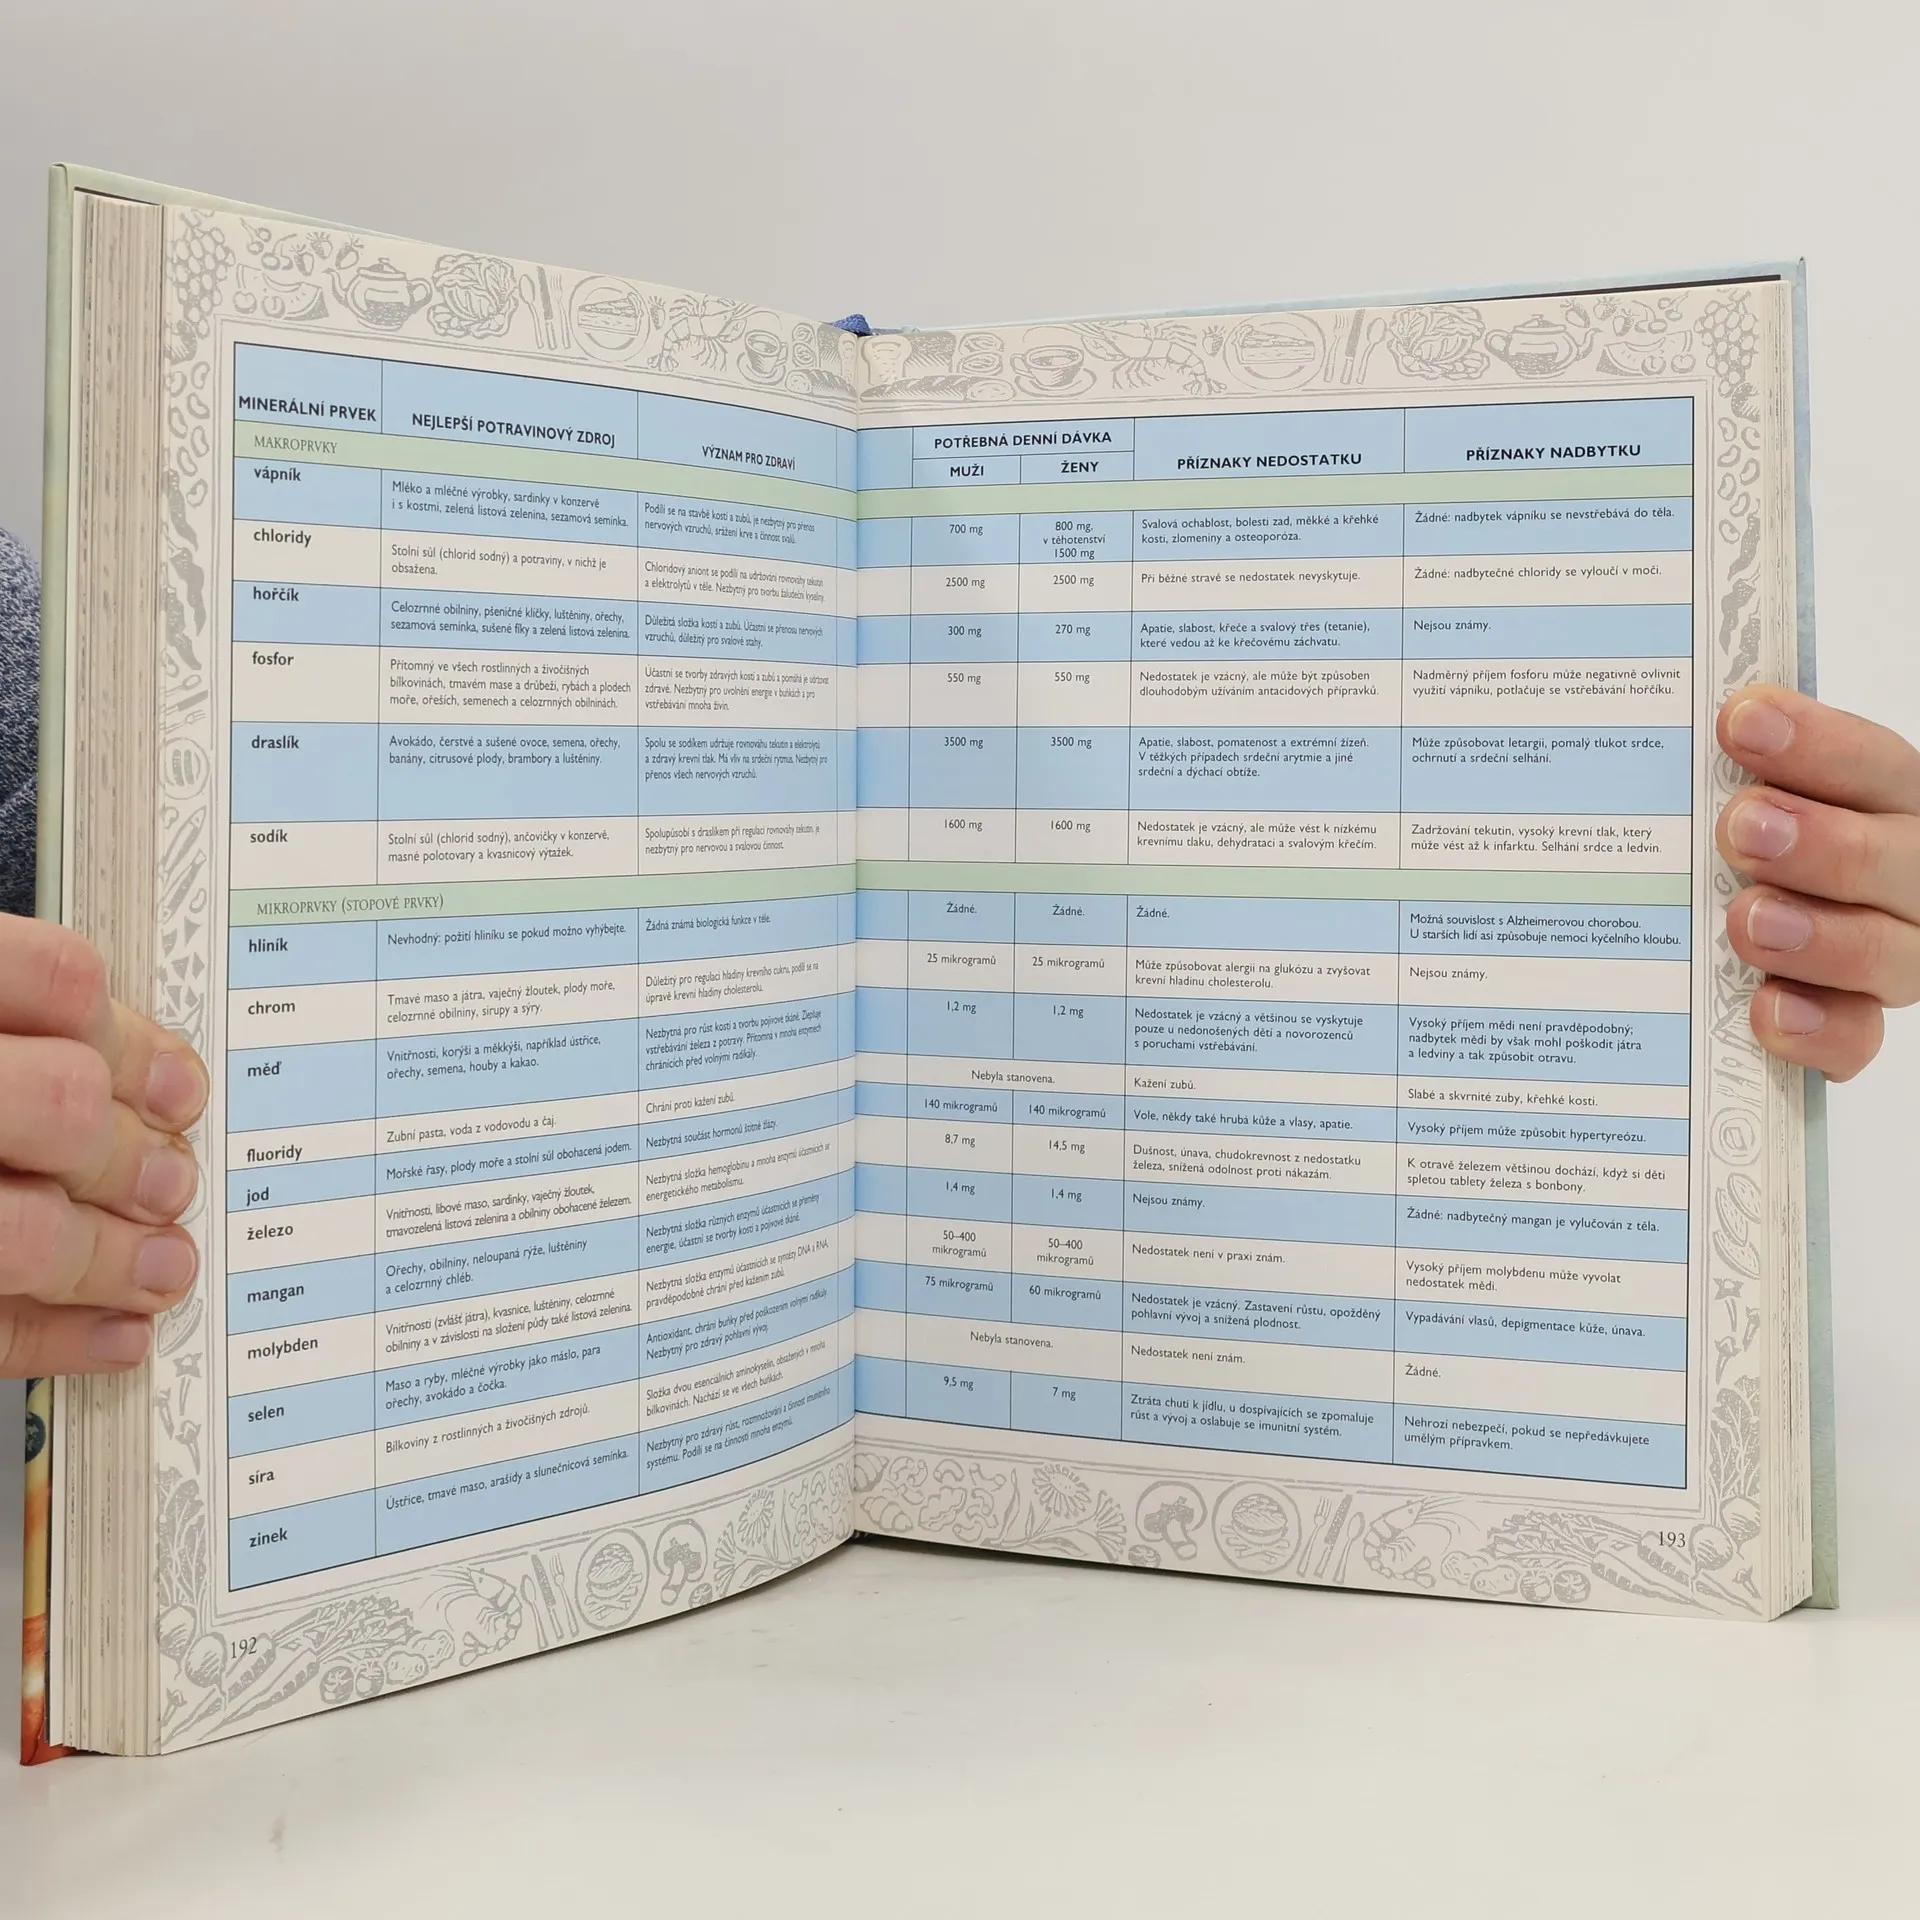 MINERÁLNÍ PRVEK
NEJLEPŠÍ POTRAVINOVÝ ZDROJ
VÝZNAM PRO ZDRAVÍ
MAKROPRVKY
vápník
Mléko a mléčné výrobky, sardinky v konzervě
i s kostmi, zelená listová zelenina, sezamová semínka.
Podílí se na stavbě kostí a zubů, je nezbytný pro přenos
nervových vzruchů, srážení krve a činnost svalů.
chloridy
Stolní sůl (chlorid sodný) a potraviny, v nichž je
obsažena.
Chloridový aniont se podílí na udržování rovnováhy tekutin
a elektrolytů v těle. Nezbytný pro tvorbu žaludeční kyseliny.
hořčík
Celozrnné obilniny, pšeničné klíčky, luštěniny, ořechy,
sezamová semínka, sušené fíky a zelená listová zelenina.
Důležitá složka kostí a zubů. Účastní se přenosu nervových
vzruchů, důležitý pro svalové stahy.
fosfor
Přítomný ve všech rostlinných a živočišných
bílkovinách, tmavém mase a drůbeži, rybách a plodech
moře, ořeších, semenech a celozrnných obilninách.
Účastní se tvorby zdravých kostí a zubů a pomáhá je udržovat
zdravé. Nezbytný pro uvolnění energie v buňkách a pro
vstřebávání mnoha živin.
draslík
Avokádo, čerstvé a sušené ovoce, semena, ořechy,
banány, citrusové plody, brambory a luštěniny.
Spolu se sodíkem udržuje rovnováhu tekutin a elektrolytů
a zdravý krevní tlak. Má vliv na srdeční rytmus. Nezbytný pro
přenos všech nervových vzruchů.
sodík
Stolní sůl (chlorid sodný), ančovičky v konzervě,
masné polotovary a kvasnicový výtažek.
Spolupůsobí s draslíkem při regulaci rovnováhy tekutin, je
nezbytný pro nervovou a svalovou činnost.
MIKROPRVKY (STOPOVÉ PRVKY)
hliník
Nevhodný: požití hliníku se pokud možno vyhýbejte.
Žádná známá biologická funkce v těle.
chrom
Tmavé maso a játra, vaječný žloutek, plody moře,
celozrnné obilniny, sirupy a sýry.
Důležitý pro regulaci hladiny krevního cukru, podílí se na
úpravě krevní hladiny cholesterolu.
měď
Vnitřnosti, korýši a měkkýši, například ústřice,
ořechy, semena, houby a kakao.
Nezbytná pro růst kostí a tvorbu pojivové tkáně. Zlepšuje
vstřebávání železa z potravy. Přítomná v mnoha enzymech
chránících před volnými radikály.
fluoridy
Zubní pasta, voda z vodovodu a čaj.
Chrání proti kažení zubů.
jod
Mořské řasy, plody moře a stolní sůl obohacená jodem.
Nezbytná součást hormonů štítné žlázy.
železo
Vnitřnosti, libové maso, sardinky, vaječný žloutek,
tmavozelená listová zelenina a obilniny obohacené železem.
Nezbytná složka hemoglobinu a mnoha enzymů účastnících se
energetického metabolismu.
mangan
Ořechy, obilniny, neloupaná rýže, luštěniny
a celozrnný chléb.
Nezbytná složka různých enzymů účastnících se přeměny
energie, účastní se tvorby kostí a pojivové tkáně.
molybden
Vnitřnosti (zvlášť játra), kvasnice, luštěniny, celozrnné
obilniny a v závislosti na složení půdy také listová zelenina.
Nezbytná složka enzymů účastnících se syntézy DNA a RNA,
pravděpodobně chrání před kažením zubů.
selen
Maso a ryby, mléčné výrobky jako máslo, para
ořechy, avokádo a čočka.
Antioxidant, chrání buňky před poškozením volnými radikály.
Nezbytný pro zdravý pohlavní vývoj.
síra
Bílkoviny z rostlinných a živočišných zdrojů.
Složka dvou esenciálních aminokyselin, obsažených v mnoha
bílkovinách. Nachází se ve všech buňkách.
zinek
Ústřice, tmavé maso, arašídy a slunečnicová semínka.
Nezbytný pro zdravý růst, rozmnožování a činnost imunitního
systému. Podílí se na činnosti mnoha enzymů.
192
POTŘEBNÁ DENNÍ DÁVKA
MUŽI
ŽENY
PŘÍZNAKY NEDOSTATKU
PŘÍZNAKY NADBYTKU
700 mg
800 mg,
v těhotenství
1500 mg
Svalová ochablost, bolesti zad, měkké a křehké
kosti, zlomeniny a osteoporóza.
Žádné: nadbytek vápníku se nevstřebává do těla.
2500 mg
2500 mg
Při běžné stravě se nedostatek nevyskytuje.
Žádné: nadbytečné chloridy se vyloučí v moči.
300 mg
270 mg
Apatie, slabost, křeče a svalový třes (tetanie),
které vedou až ke křečovému záchvatu.
Nejsou známy.
550 mg
550 mg
Nedostatek je vzácný, ale může být způsoben
dlouhodobým užíváním antacidových přípravků.
Nadměrný příjem fosforu může negativně ovlivnit
využití vápníku, potlačuje se vstřebávání hořčíku.
3500 mg
3500 mg
Apatie, slabost, pomatenost a extrémní žízeň.
V těžkých případech srdeční arytmie a jiné
srdeční a dýchací obtíže.
Může způsobovat letargii, pomalý tlukot srdce,
ochrnutí a srdeční selhání.
1600 mg
1600 mg
Nedostatek je vzácný, ale může vést k nízkému
krevnímu tlaku, dehydrataci a svalovým křečím.
Zadržování tekutin, vysoký krevní tlak, který
může vést až k infarktu. Selhání srdce a ledvin.
Žádné.
Žádné.
Žádné.
Možná souvislost s Alzheimerovou chorobou.
U starších lidí asi způsobuje nemoci kyčelního kloubu.
25 mikrogramů
25 mikrogramů
Může způsobovat alergii na glukózu a zvyšovat
krevní hladinu cholesterolu.
Nejsou známy.
1,2 mg
1,2 mg
Nedostatek je vzácný a většinou se vyskytuje
pouze u nedonošených dětí a novorozenců
s poruchami vstřebávání.
Vysoký příjem mědi není pravděpodobný;
nadbytek mědi by však mohl poškodit játra
a ledviny a tak způsobit otravu.
Nebyla stanovena.
Kažení zubů.
Slabé a skvrnité zuby, křehké kosti.
140 mikrogramů
140 mikrogramů
Vole, někdy také hrubá kůže a vlasy, apatie.
Vysoký příjem může způsobit hypertyreózu.
8,7 mg
14,5 mg
Dušnost, únava, chudokrevnost z nedostatku
železa, snížená odolnost proti nákazám.
K otravě železem většinou dochází, když si děti
spletou tablety železa s bonbony.
1,4 mg
1,4 mg
Nejsou známy.
Žádné: nadbytečný mangan je vylučován z těla.
50–400
mikrogramů
50–400
mikrogramů
Nedostatek není v praxi znám.
Vysoký příjem molybdenu může vyvolat
nedostatek mědi.
75 mikrogramů
60 mikrogramů
Nedostatek je vzácný. Zastavení růstu, opožděný
pohlavní vývoj a snížená plodnost.
Vypadávání vlasů, depigmentace kůže, únava.
Nebyla stanovena.
Nedostatek není znám.
Žádné.
9,5 mg
7 mg
Ztráta chuti k jídlu, u dospívajících se zpomaluje
růst a vývoj a oslabuje se imunitní systém.
Nehrozí nebezpečí, pokud se nepředávkujete
umělým přípravkem.
193